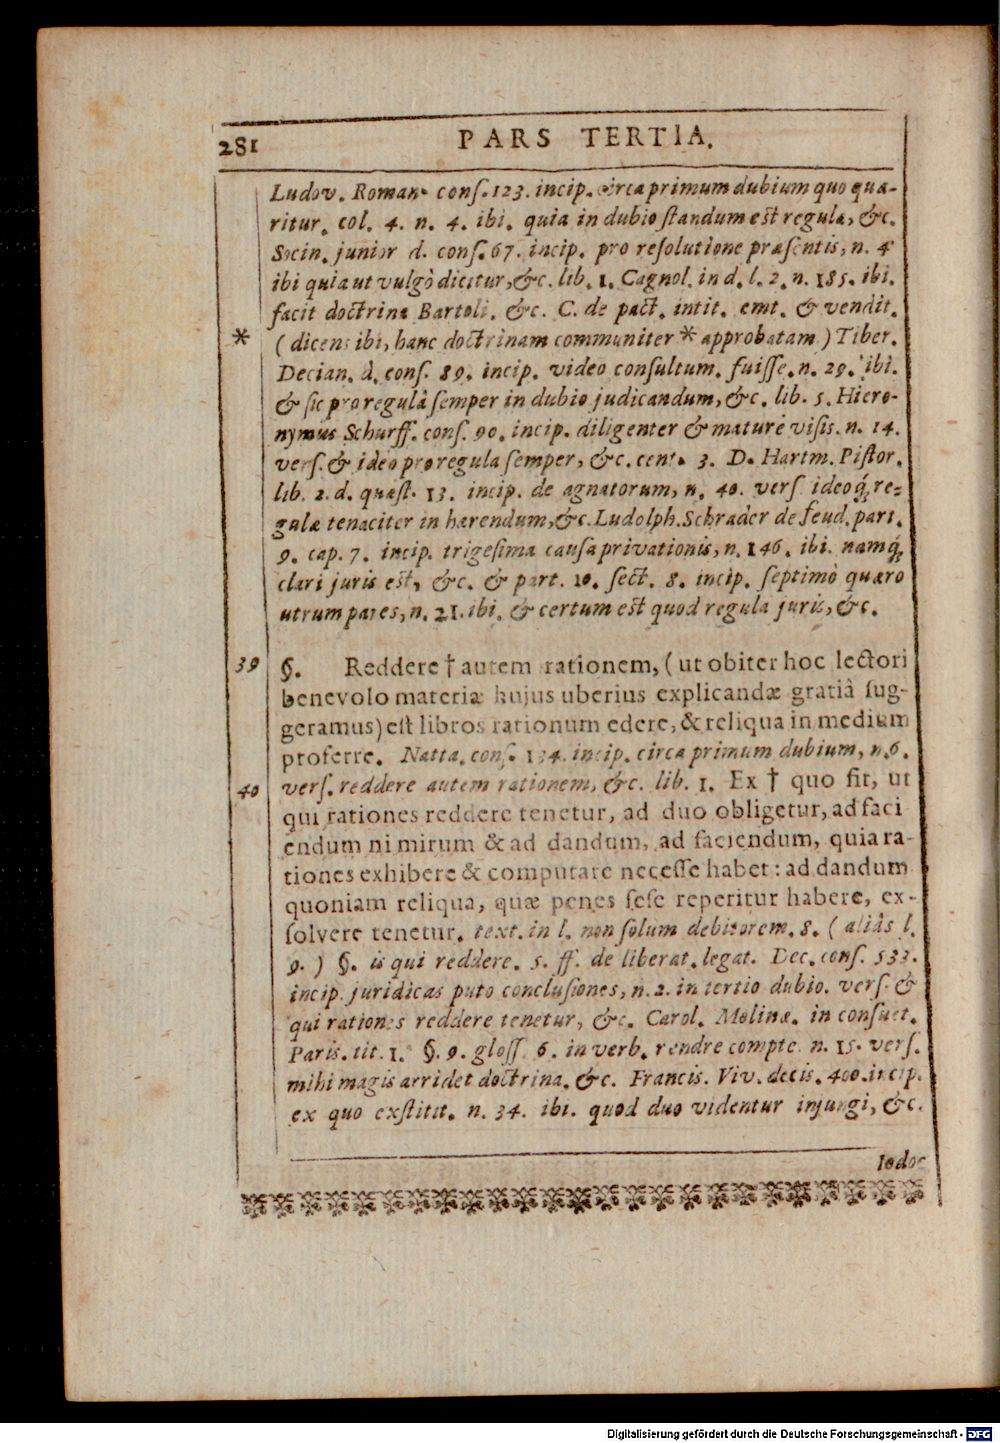 281 PARS TERTIA.
Ludov. Roman. conſ. 123. incip. circa primum dubium quo quæ-
ritur. col. 4. n. 4. ibi. quia in dubio ſtandum eſt regulæ, &c.
Socin. junior d. conſ. 67. incip. pro reſolutione præſentis, n. 4
ibi quia ut vulgò dicitur, &c. lib. 1. Cagnol. in d. l. 2. n. 185. ibi.
facit doctrina Bartoli. &c. C. de pact. int it. emt. & vendit.
* ( dicens ibi, hanc doctrinam communiter * approbatam ) Tiber.
Decian. d. conſ. 89. incip. video conſultum. fuiſſe. n. 29. ibi.
& ſic pro regulâ ſemper in dubio judicandum, &c. lib. 5. Hiero-
nymus Schurff. conſ. 90. incip. diligenter & maturè viſis. n. 14.
verſ. & ideo pro regula ſemper, &c. cent. 3. D. Hartm. Piſtor.
lib. 2. d. quæſt. 13. incip. de agnatorum, n. 40. verſ ideoq́; re-
gulæ tenaciter in hærendum, &c. Ludolph. Schrader de feud. part.
9. cap. 7. incip. trigeſima cauſa privationis, n. 146. ibi. namq́;
clari juris eſt, &c. & part. 10. ſect. 8. incip. ſeptimò quæro
utrum pares, n. 21. ibi. & certum eſt quod regula juris, &c.
39 §. Reddere † autem rationem, ( ut obiter hoc lectori
benevolo materiæ hujus uberius explicandæ gratiâ ſug-
geramus) eſt libros rationum edere, & reliqua in medium
proferre. Natta. conſ. 134. incip. circa primum dubium, n. 6.
40 verſ. reddere autem rationem, &c. lib. 1. Ex † quo fit, ut
qui rationes reddere tenetur, ad duo obligetur, ad faci
endum nimirum & ad dandum, ad faciendum, quia ra-
tiones exhibere & computare neceſſe habet : ad dandum
quoniam reliqua, quæ penes ſeſe reperitur habere, ex-
ſolvere tenetur. text. in l. non ſolum debitorem. 8. ( aliâs l.
9. ) §. is qui reddere. 5. ff. de liberat. legat. Dec. conſ. 533.
incip. juridicas puto concluſiones, n. 2. in tertio dubio. verſ. &
qui rationes reddere tenetur, &c. Carol. Molinæ. in conſuet.
Paris. tit. 1. §. 9. gloſſ. 6. in verb. rendre compte. n. 15. verſ.
mihi magis arridet doctrina. &c. Francis. Viv. decis. 400. incip.
ex quo exſtitit. n. 34. ibi. quod duo videntur injungi, &c.
Iodoc
Digitalisierung gefördert durch die Deutsche Forschungsgemeinschaft - DFG